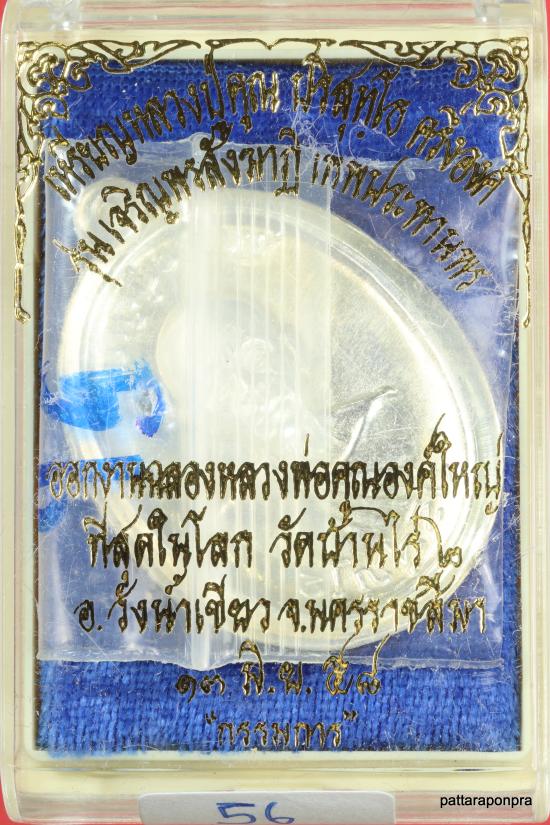 เหรียญหลวงปู่คูณ ปริสุทฺโธ ครึ่งองค์
รุ่น เจริญพรสั่งฆาฏิ เทพประทานพร
ออกงานฉลองหลวงพ่อคูณองค์ใหญ่
ที่สุดในโลก วัดบ้านไร่ ๒
อ.วังน้ำเขียว จ.นครราชสีมา
๑๓ มิ.ย. ๕๘
"กรรมการ"
56
pattaraponpra